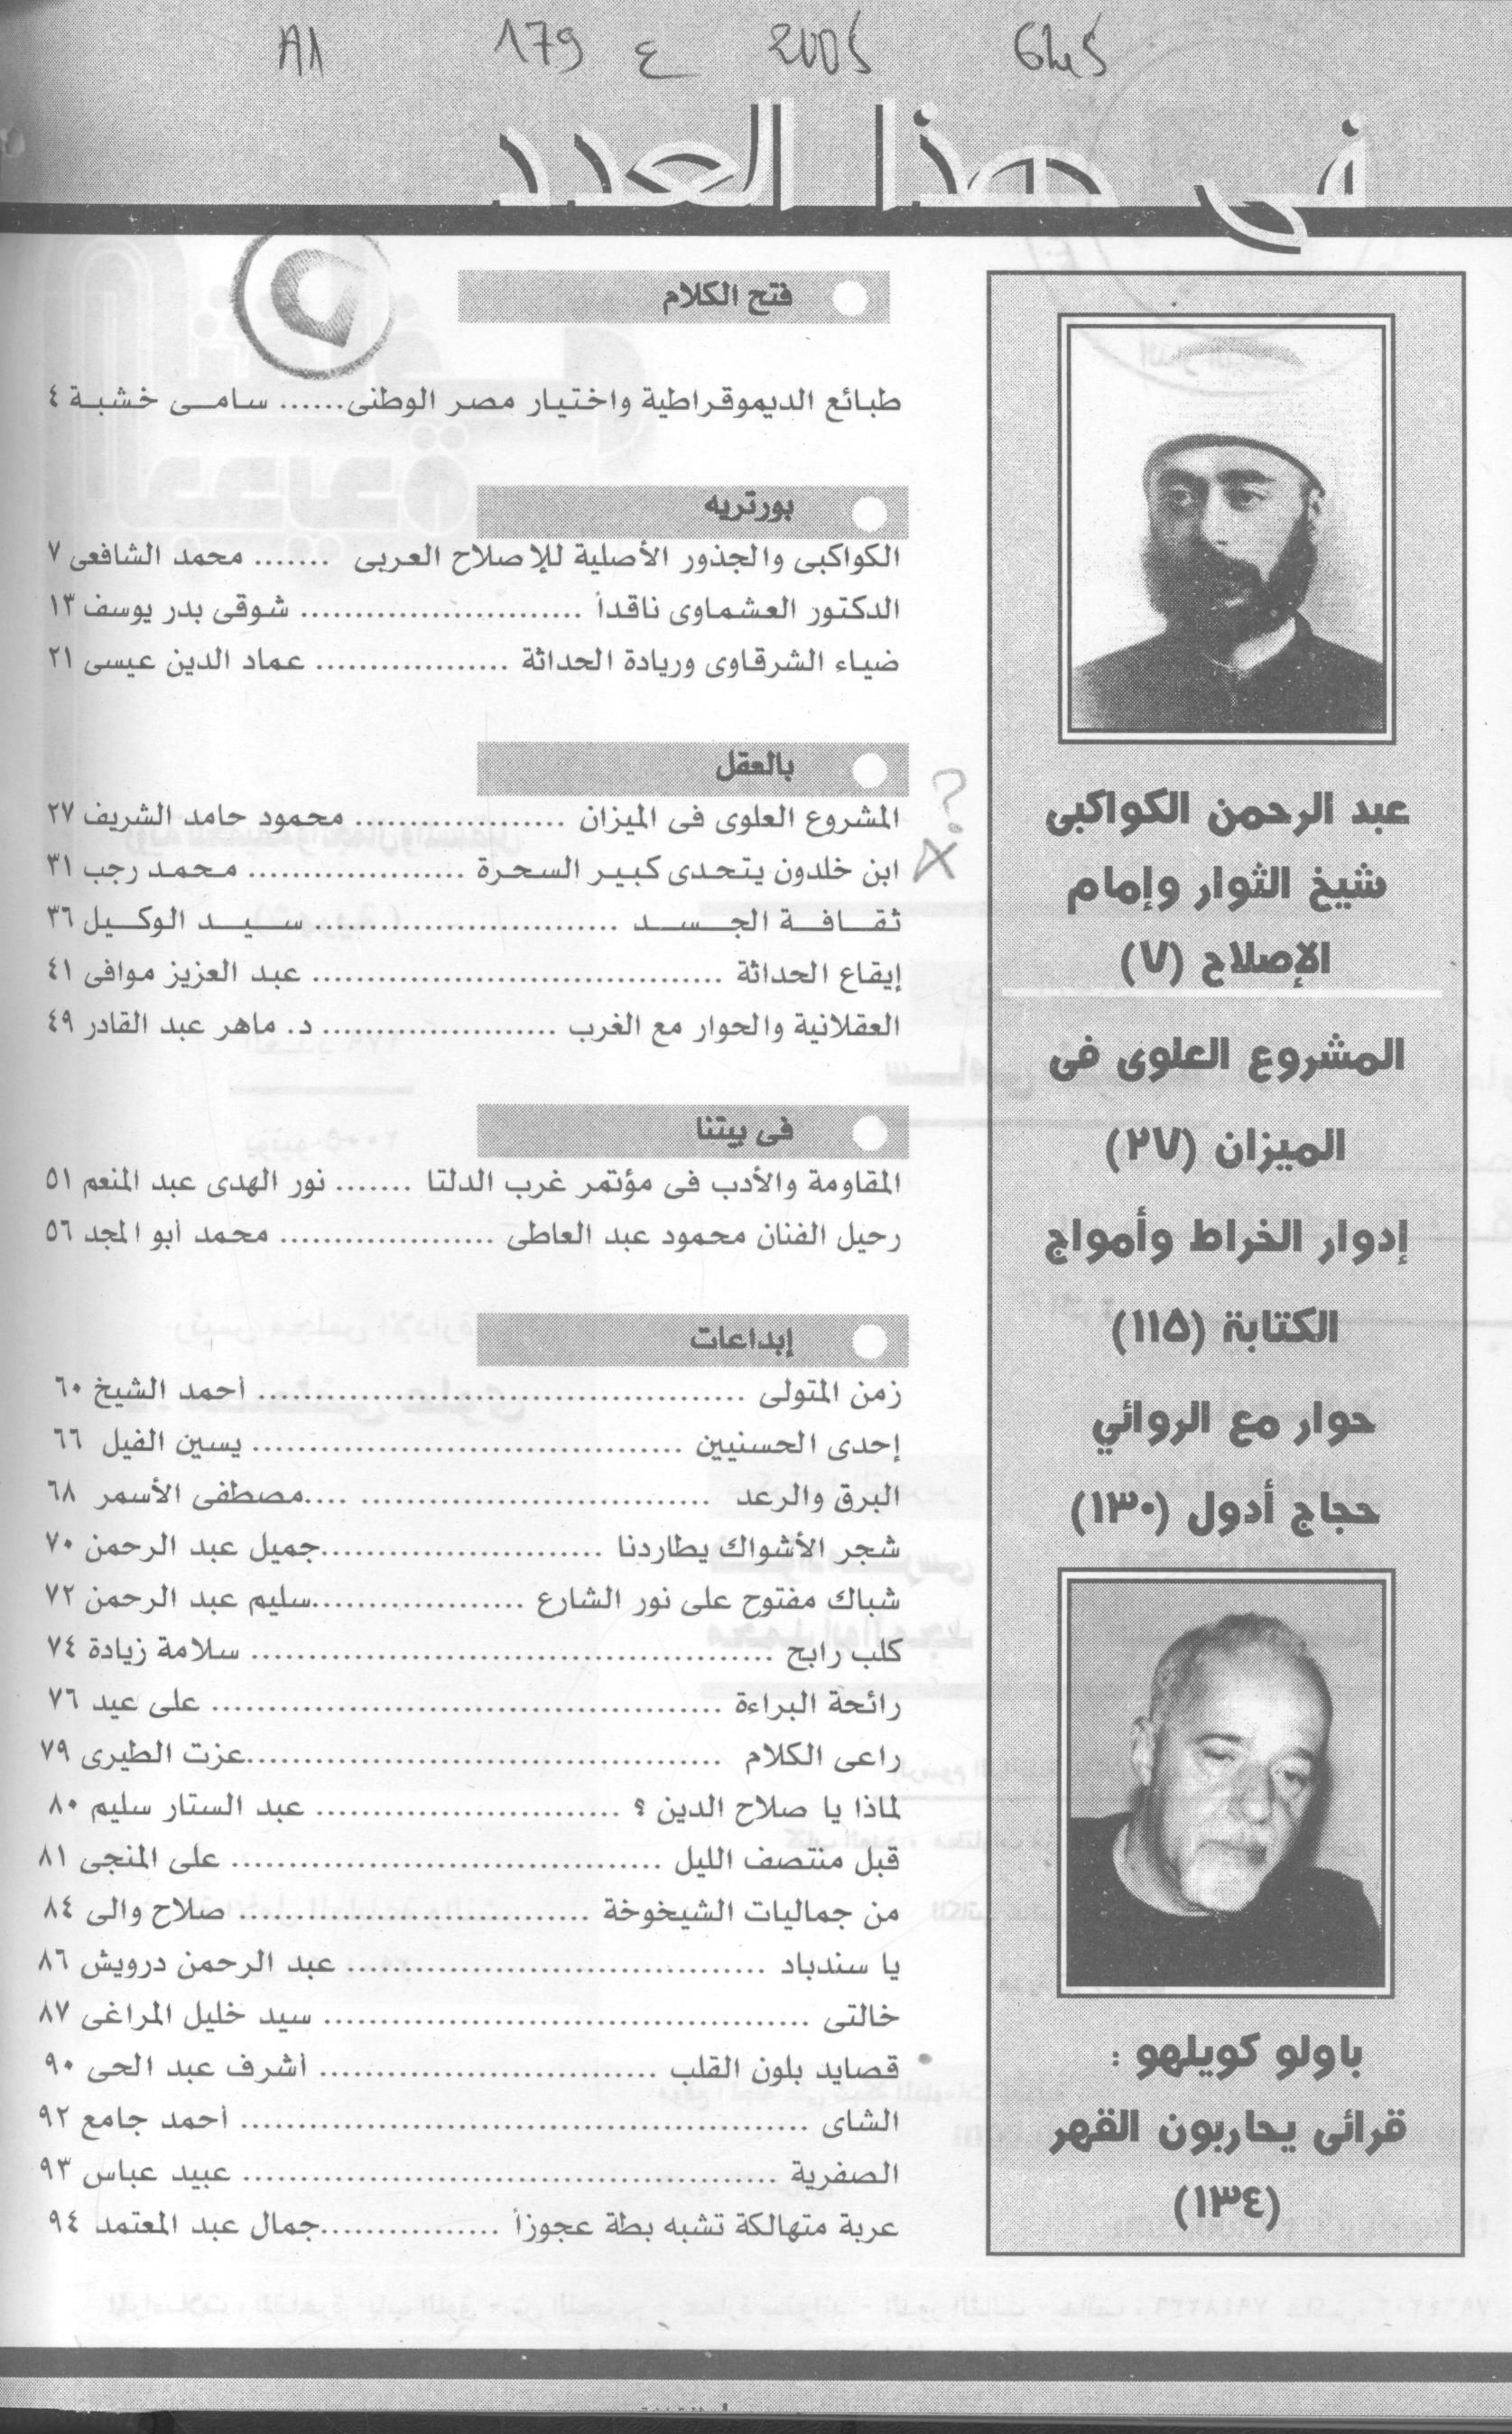 179 ع 2005
فى هذا العدد
عبد الرحمن الكواكبى
شيخ الثوار وإمام
الإصلاح (٧)
المشروع العلوى فى
الميزان (٢٧)
إدوار الخراط وأمواج
الكتابة (١١٥)
حوار مع الروائي
حجاج أدول (١٣٠)
باولو كويلهو :
قرائى يحاربون القهر
(١٣٤)
فتح الكلام
طبائع الديموقراطية واختيار مصر الوطنى ...... سامى خشبة ٤
بورتريه
الكواكبى والجذور الأصلية للإصلاح العربى ....... محمد الشافعى ٧
الدكتور العشماوى ناقداً .......................... شوقى بدر يوسف ١٣
ضياء الشرقاوى وريادة الحداثة .................. عماد الدين عيسى ٢١
بالعقل
المشروع العلوى فى الميزان ...................... محمود حامد الشريف ٢٧
ابن خلدون يتحدى كبير السحرة .................... محمد رجب ٣١
ثقافة الجسد ............................ سيد الوكيل ٣٦
إيقاع الحداثة ...................................... عبد العزيز موافى ٤١
العقلانية والحوار مع الغرب ...................... د. ماهر عبد القادر ٤٩
فى بيتنا
المقاومة والأدب فى مؤتمر غرب الدلتا ....... نور الهدى عبد المنعم ٥١
رحيل الفنان محمود عبد العاطى .................... محمد أبو المجد ٥٦
إبداعات
زمن المتولى ............................................. أحمد الشيخ ٦٠
إحدى الحسنيين ........................................ يسين الفيل ٦٦
البرق والرعد .................................... مصطفى الأسمر ٦٨
شجر الأشواك يطاردنا ..........................جميل عبد الرحمن ٧٠
شباك مفتوح على نور الشارع ....................سليم عبد الرحمن ٧٢
كلب رابح ................................................ سلامة زيادة ٧٤
رائحة البراءة ............................................... على عيد ٧٦
راعى الكلام ............................................عزت الطيرى ٧٩
لماذا يا صلاح الدين ؟ ............................ عبد الستار سليم ٨٠
قبل منتصف الليل ........................................ على المنجى ٨١
من جماليات الشيخوخة ................................ صلاح والى ٨٤
يا سندباد ....................................... عبد الرحمن درويش ٨٦
خالتى ............................................. سيد خليل المراغى ٨٧
قصايد بلون القلب ............................... أشرف عبد الحى ٩٠
الشاى .................................................... أحمد جامع ٩٢
الصفرية ................................................. عبيد عباس ٩٣
عربة متهالكة تشبه بطة عجوزاً .................جمال عبد المعتمد ٩٤